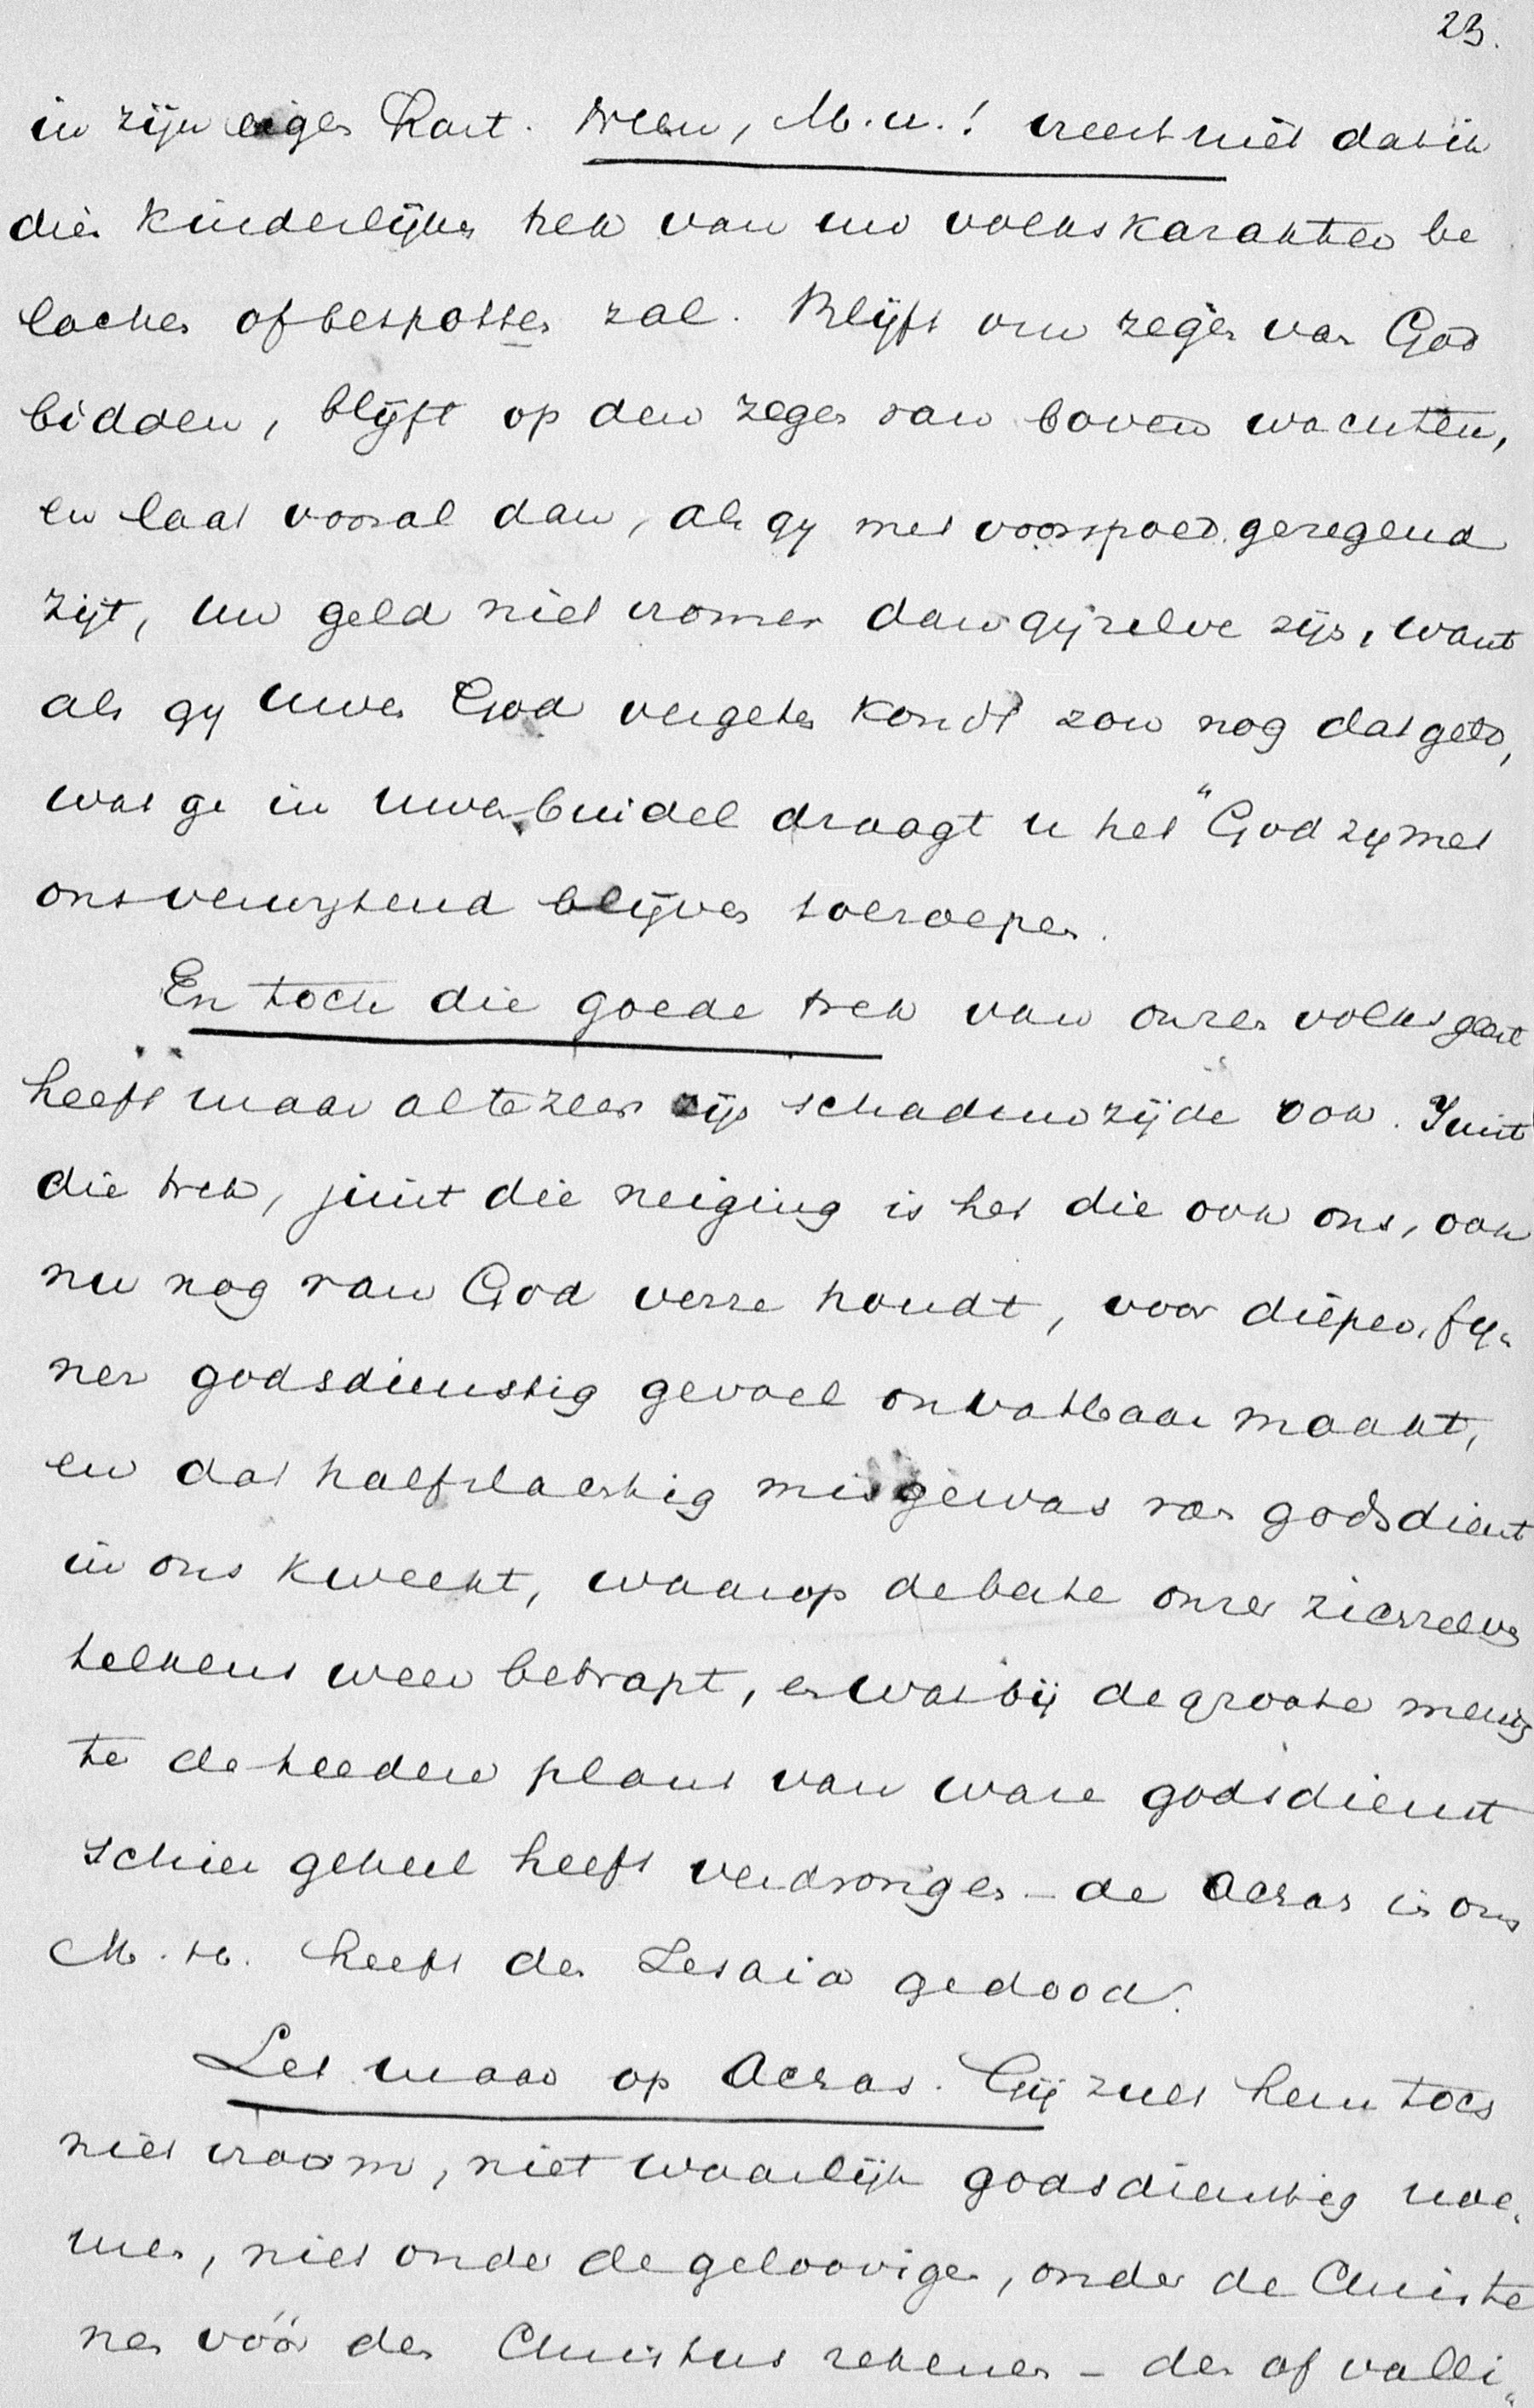 23.
in zijn eigen hart. Neen, M. H.! vreest niet dat ik
dien kinderlijken trek van uw volkskarakter be
lachen of bespotten zal. Blijft om zegen van God
bidden, blijft op den zegen van boven wachten,
en laat vooral dan, als gy met voorspoed gezegend
zijt, uw geld niet vromer dan gijzelve zijn, want
als gy uwen God vergeten kondt zou nog dat geld,
wat ge in uwen buidel draagt u het "God zy met
ons verwytend blijven toeroepen.
En toch die goede trek van onzen volksgeest
heeft maar al te zeer zijn schaduwzijde ook. Juist
die trek, juist die neiging is het die ook ons, ook
nu nog van God verre houdt, voor dieper, fy-
ner godsdienstig gevoel onvatbaar maakt,
en dat halfslachtig misgewas van godsdienst
in ons kweekt, waarop de beste onzer zichzelve
telkens weer betrapt, en wat bij de groote menig
te de teedere plant van ware godsdienst
schier geheel heeft verdrongen - de Achas in ons
M. H. heeft den Jesaia gedood.
Let maar op Achas. Gij zult hem toch
niet vroom, niet waarlijk godsdienstig noe-
men, niet onder de geloovigen, onder de Christe
nen vóór den Christus rekenen - den afvalli-